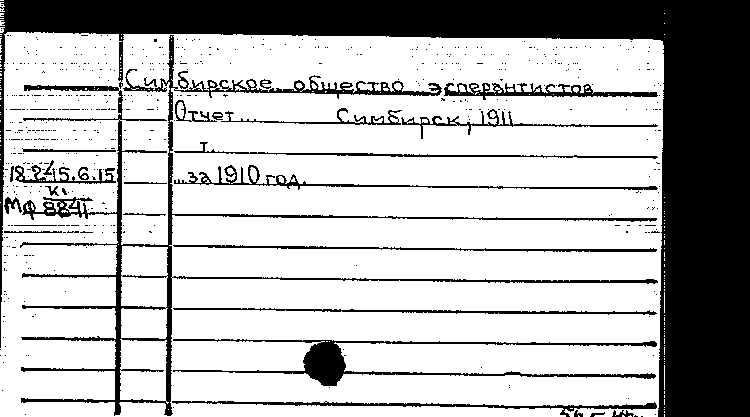 Симбирское общество эсперантистов
Отчет... Симбирск, 1911.
т.
18.245.6.15 ...за 1910 год.
к.
МФ 8841